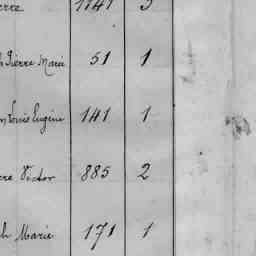 erre 1141 3
h Pierre Marie 51 1
n Louis Eugène 141 1
rre Victor 885 2
ph Marie 171 1